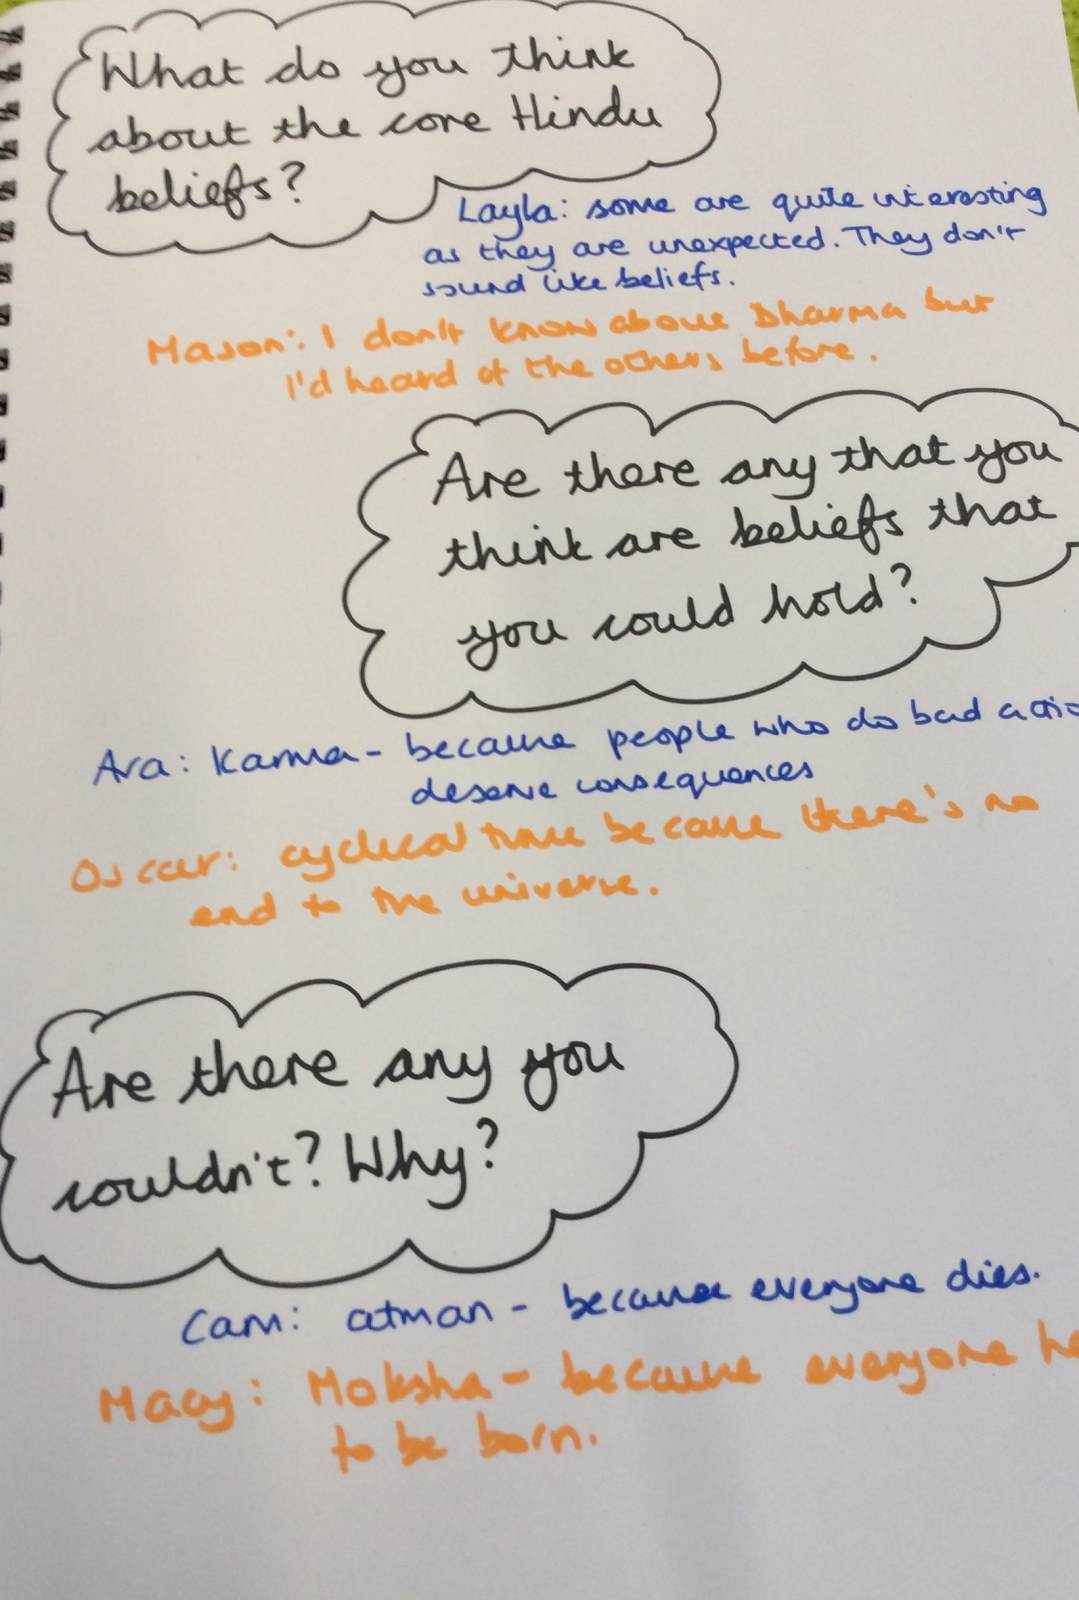 What do you think
about the core Hindu
beliefs?
Layla: some are quite interesting
as they are unexpected. They don't
sound like beliefs.
Mason: I don't know about Dharma but
I'd heard of the others before.
Are there any that you
think are beliefs that
you could hold?
Ava: Karma - because people who do bad actio
deserve consequences
Oscar: cyclical time because there's no
end to the universe.
Are there any you
couldn't? Why?
Cam: atman - because everyone dies.
Macy: Moksha - because everyone ha
to be born.